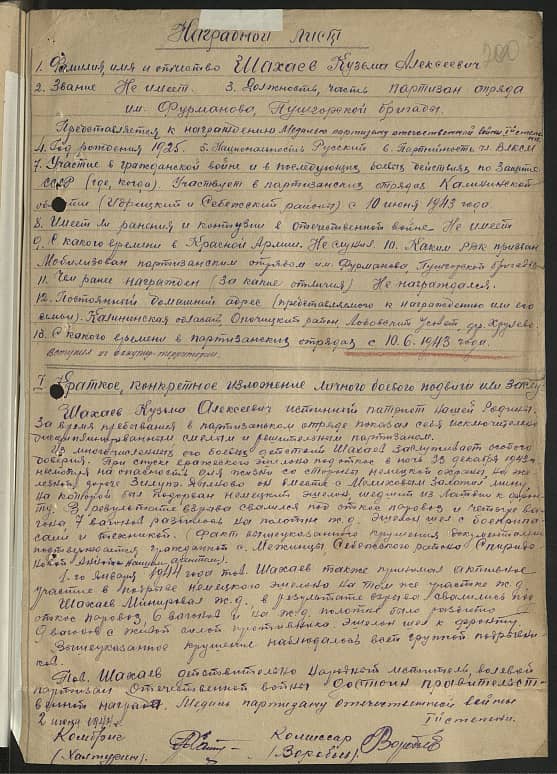 200
Наградной лист
1. Фамилия, имя и отчество Шахаев Кузьма Алексеевич
2. Звание Не имеет. 3. Должность, часть партизан отряда
им. Фурманова, Пушгорской бригады.
Представляется к награждению Медалью партизану отечественной войны II степени
4. Год рождения 1925. 5. Национальность Русский 6. Партийность чл. ВЛКСМ
7. Участие в гражданской войне и в последующих боевых действиях по защите
СССР (где, когда). Участвует в партизанских отрядах Калининской
области (Идрицкий и Себежский районы) с 10 июня 1943 года.
8. Имеет ли ранения и контузии в отечественной войне Не имеет
9. С какого времени в Красной Армии. Не служил. 10. Каким РВК призван
Мобилизован партизанским отрядом им. Фурманова Пушгорской бригады
11. Чем ранее награжден (за какие отличия) Не награждался.
12. Постоянный домашний адрес (представляемого к награждению или его
семьи). Калининская область Опочецкий район, д. Хрулево.
13. С какого времени в партизанских отрядах с 10.6.1943 года.
вступил из
I Краткое, конкретное изложение личного боевого подвига или заслуг
Шахаев Кузьма Алексеевич истинный патриот нашей Родины.
За время пребывания в партизанском отряде показал себя исключительно
дисциплинированным смелым и решительным партизаном.
Из многочисленных его боевых действий Шахаев заслуживает особого
внимания. При спуске вражеского эшелона под откос в ночь 23 декабря 1943 г.
несмотря на опасность для жизни со стороны немецкой охраны на же-
лезной дороге Зилупе он вместе с заложил мину,
на которой был подорван немецкий эшелон, шедший из Латвии к фрон-
ту. В результате взрыва свалился под откос паровоз и четыре ва-
гона, 7 вагонов разбилось на полотне ж.д. Эшелон шел с боеприпа-
сами и техникой. (Факт вышеуказанного крушения документально
подтверждается гражданкой д. Межинцы Себежского района
агентом).
1-го января 1944 года тов. Шахаев также принимал активное
участие в подрыве немецкого эшелона на том же участке ж.д.
Шахаев минировал ж.д. в результате взрыва свалились под
откос паровоз, 6 вагонов и на ж.д. полотне было разбито
9 вагонов с живой силой противника. Эшелон шел к фронту.
Вышеуказанное крушение наблюдалось всей группой подрывни-
ков.
Тов. Шахаев действительно народный мститель, волевой
партизан Отечественной войны достоин правительст-
венной награды. Медаль партизану отечественной войны
II степени.
2 1944 г.
Комбриг Комиссар
(Халтурин) (Воробьев)